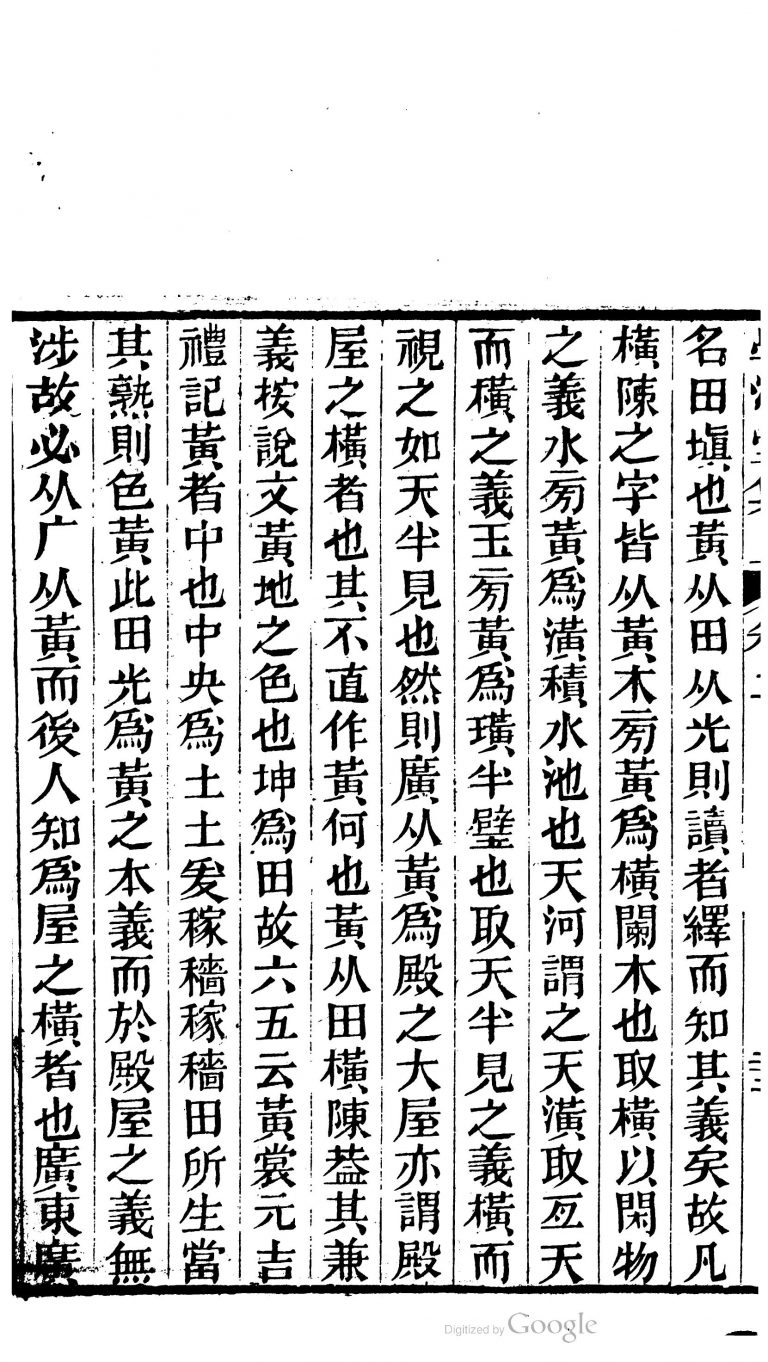 名田塡也黃从田从光則讀者繹而知其義矣故凡
橫陳之字皆从黃木㫄黃爲橫闌木也取橫以閑物
之義水㫄黃爲潢積水池也天河謂之天潢取亙天
而橫之義玉㫄黃爲璜半璧也取天半見之義橫而
視之如天半見也然則廣从黃爲殿之大屋亦謂殿
屋之橫者也其不直作黃何也黃从田橫陳葢其兼
義按說文黃地之色也坤爲田故六五云黃裳元吉
禮記黃者中也中央爲土土爰稼穡稼穡田所生當
其熟則色黃此田光爲黃之本義而於殿屋之義無
涉故必从广从黃而後人知爲屋之橫者也廣東廣
Digitized by Google